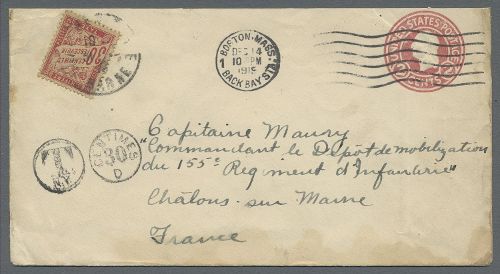 BOSTON, MASS.
1
DEC 14
10 PM
BACK BAY STA.
UNITED STATES POSTAGE
2 CENTS 2
30
CENTIMES
T
N.Y.
CENTIMES
30
D
Capitaine Maury
Commandant le Dépôt de mobilization
du 155e Regiment d'Infanterie
Châlons-sur Marne
France